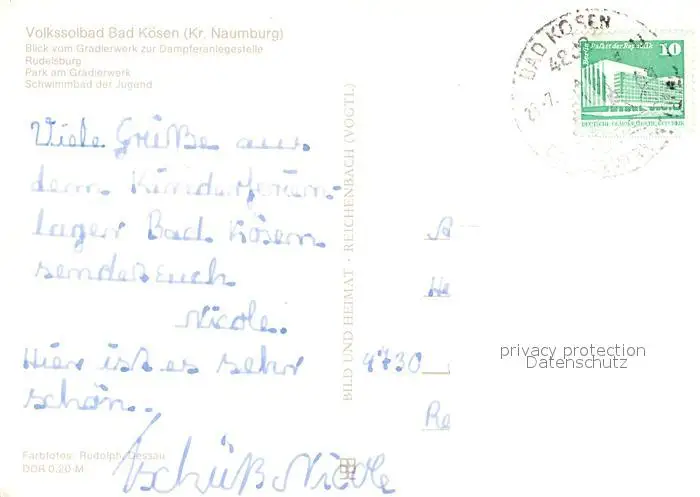 Volkssolbad Bad Kösen (Kr. Naumburg)
Blick vom Gradierwerk zur Dampferanlegestelle
Rudelsburg
Park am Gradierwerk
Schwimmbad der Jugend
BAD KÖSEN
48
Berlin Palast der Republik
10
DEUTSCHE DEMOKRATISCHE REPUBLIK
Viele Grüße aus
dem Kinderferien-
lager Bad Kösen
sendet Euch
Nicole.
Hier ist es sehr
schön.
Tschüß Nicole
BILD UND HEIMAT · REICHENBACH (VOGTL)
A
He
4730
Re
privacy protection
Datenschutz
Farbfotos: Rudolph, Dessau
DDR 0,20 M